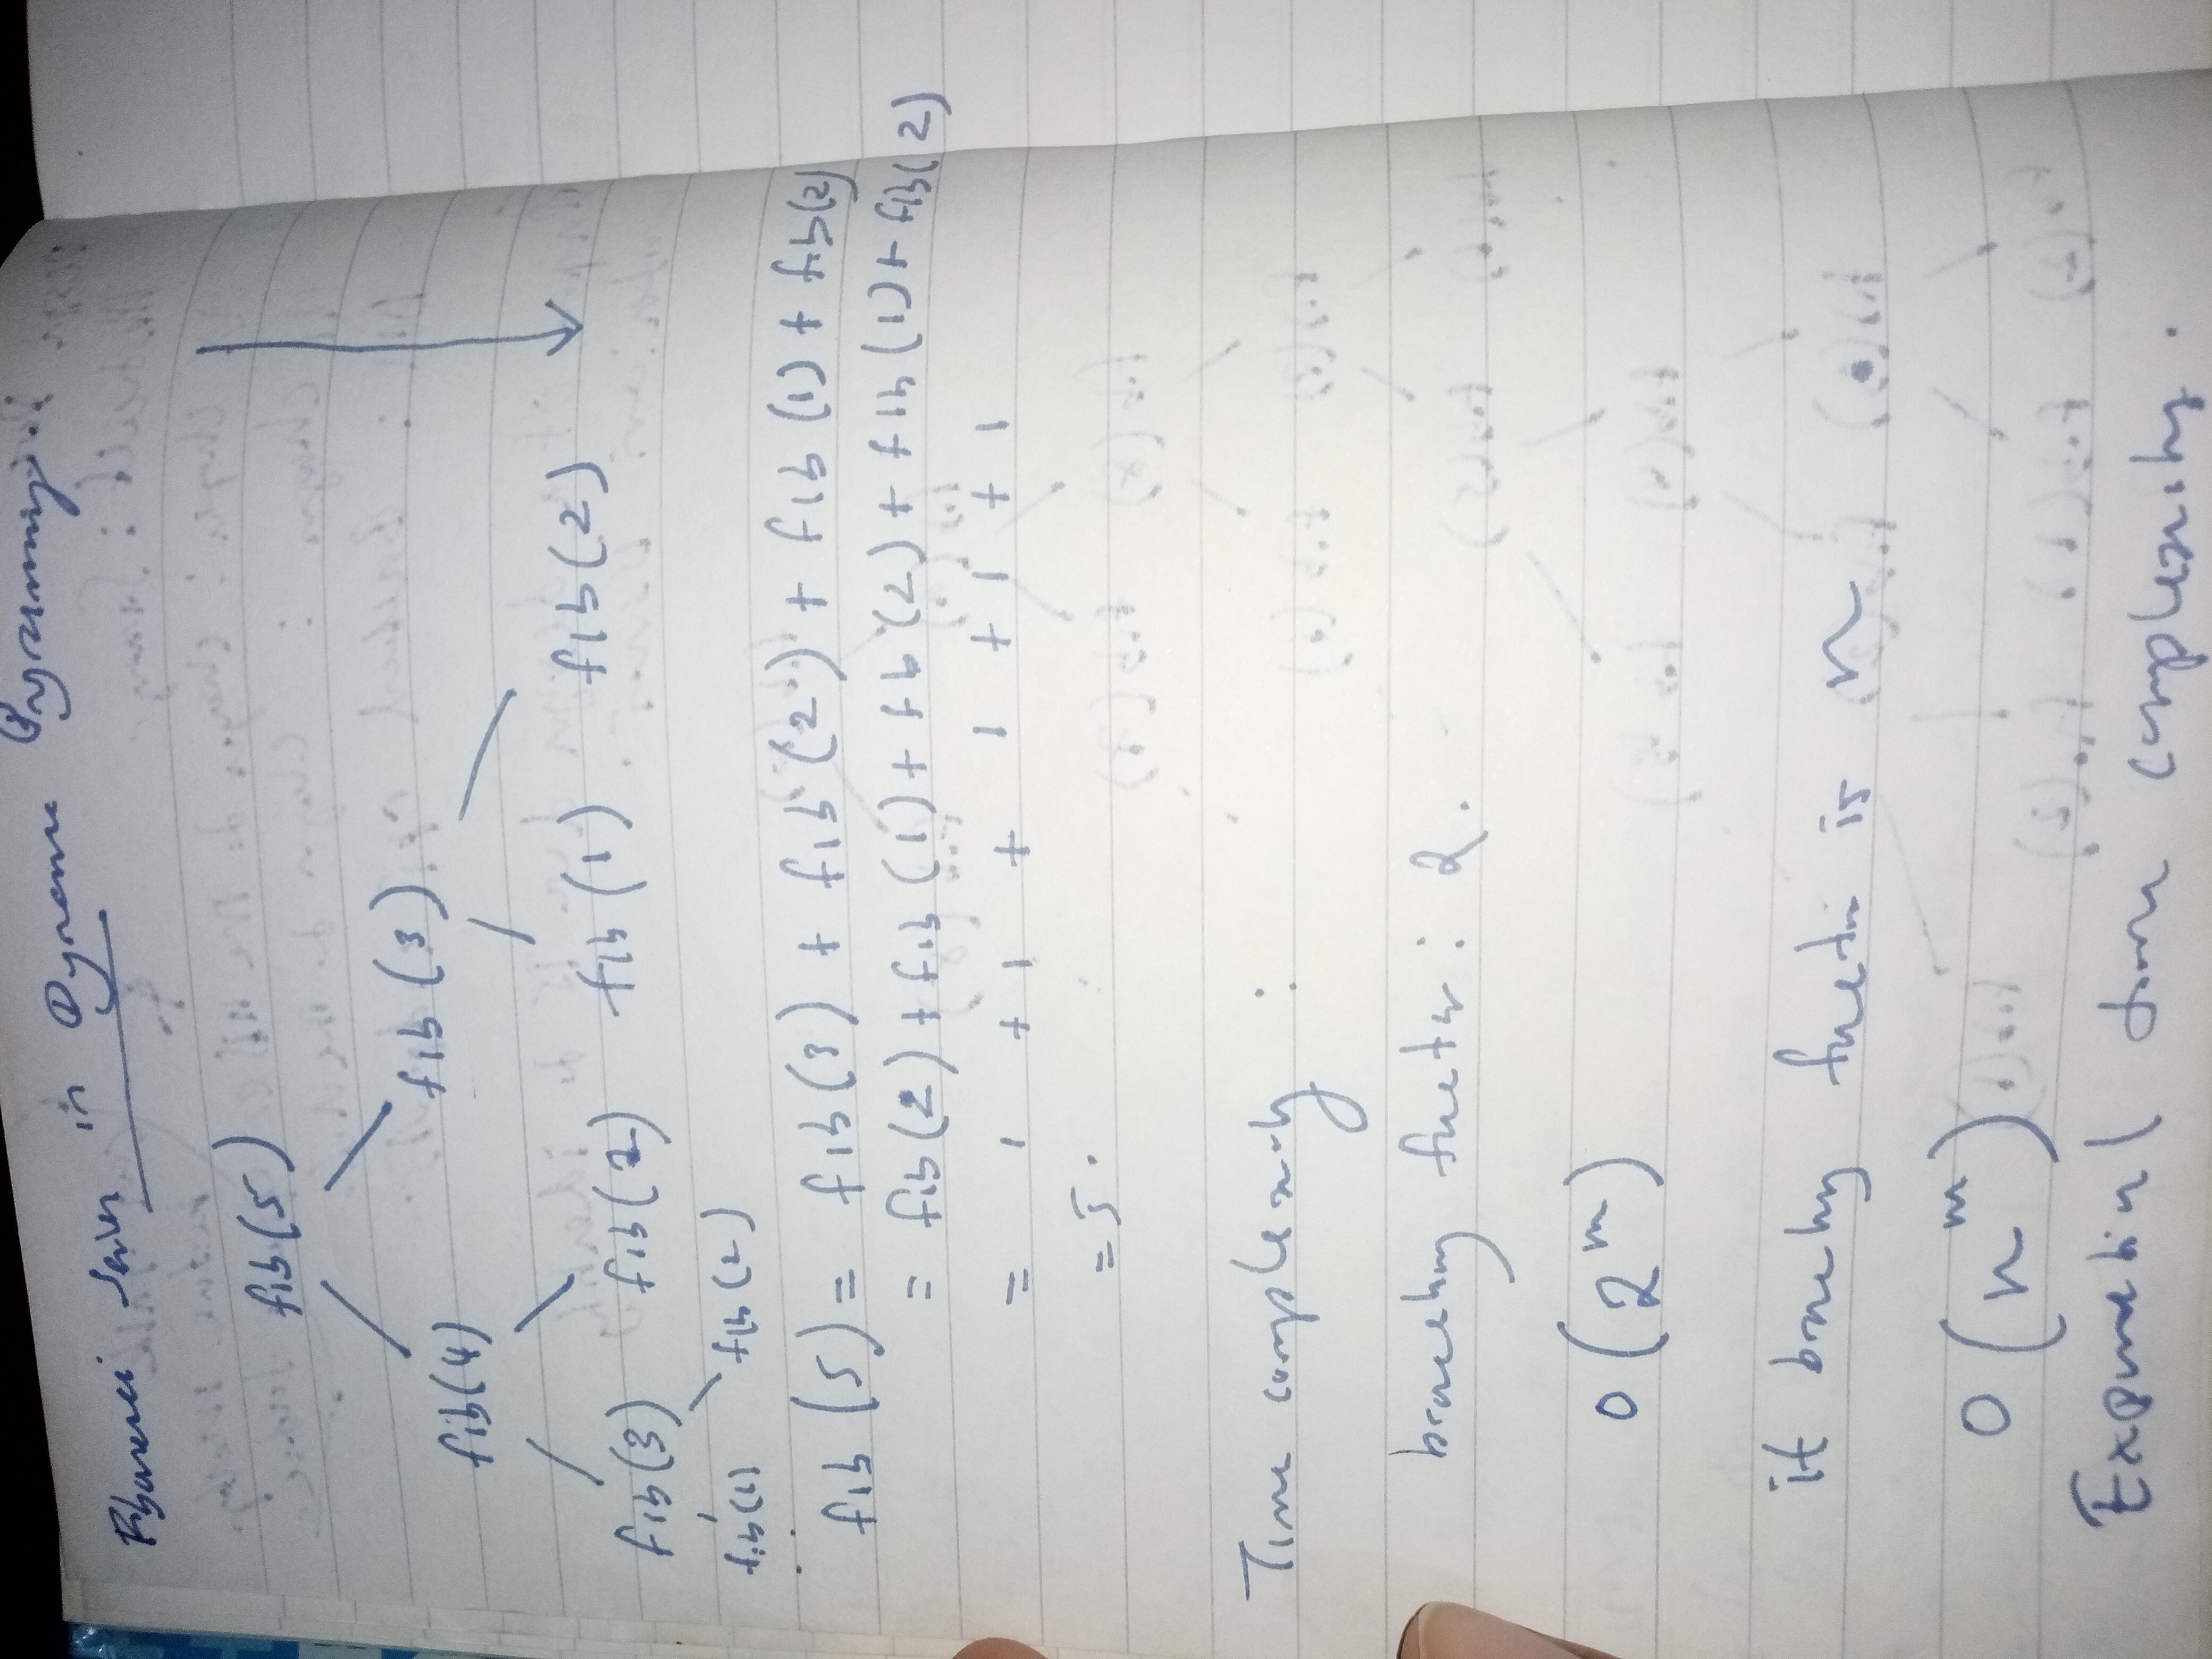 Fibonacci Series in Dynamic Programming
fib(5)
fib(4) fib(3)
fib(3) fib(2) fib(1) fib(2)
fib(1) fib(2)
fib(5) = fib(3) + fib(2) + fib(1) + fib(2)
= fib(2) + fib(1) + fib(2) + fib(1) + fib(2)
= 1 + 1 + 1 + 1 + 1
= 5.
Time complexity :
branching factor : 2.
O(2^m)
if branching factor is n
O(n^m)
Exponential time complexity.